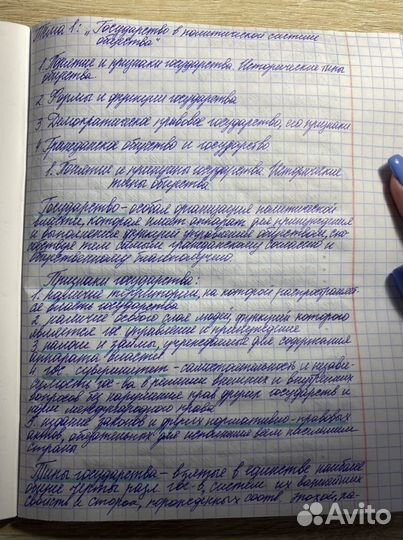 Тема 1: „Государство в политической системе
общества"
1. Понятие и признаки государства. Исторические типы
общества
2. Формы и функции государства
3. Демократическое правовое государство, его признаки
4. Гражданское общество и государство
1. Понятие и принципы государства. Исторические
типы общества
Государство - особая организация политической
власти, которая имеет аппарат для принуждения
и выполнения функций управления обществом, спо-
собствуя тем самым гражданскому согласию и
общественному благополучию
Признаки государства:
1. наличие территории, на которой распространяет-
ся власть государства
2. наличие особого слоя людей, функцией которого
является гос управление и принуждение
3. налоги и займы, учреждаемые для содержания
аппарата власти
4. гос суверенитет - самостоятельность и незави-
симость гос-ва в решении внешних и внутренних
вопросов без нарушения прав других государств и
норм международного права
5. издание законов и других нормативно-правовых
актов, обязательных для исполнения всем населением
страны
Типы государства - взятые в единстве наиболее
общие черты разл. гос-в, систем их важнейших
свойств и сторон, порождённых соотв. эпохой, ха-
Avito